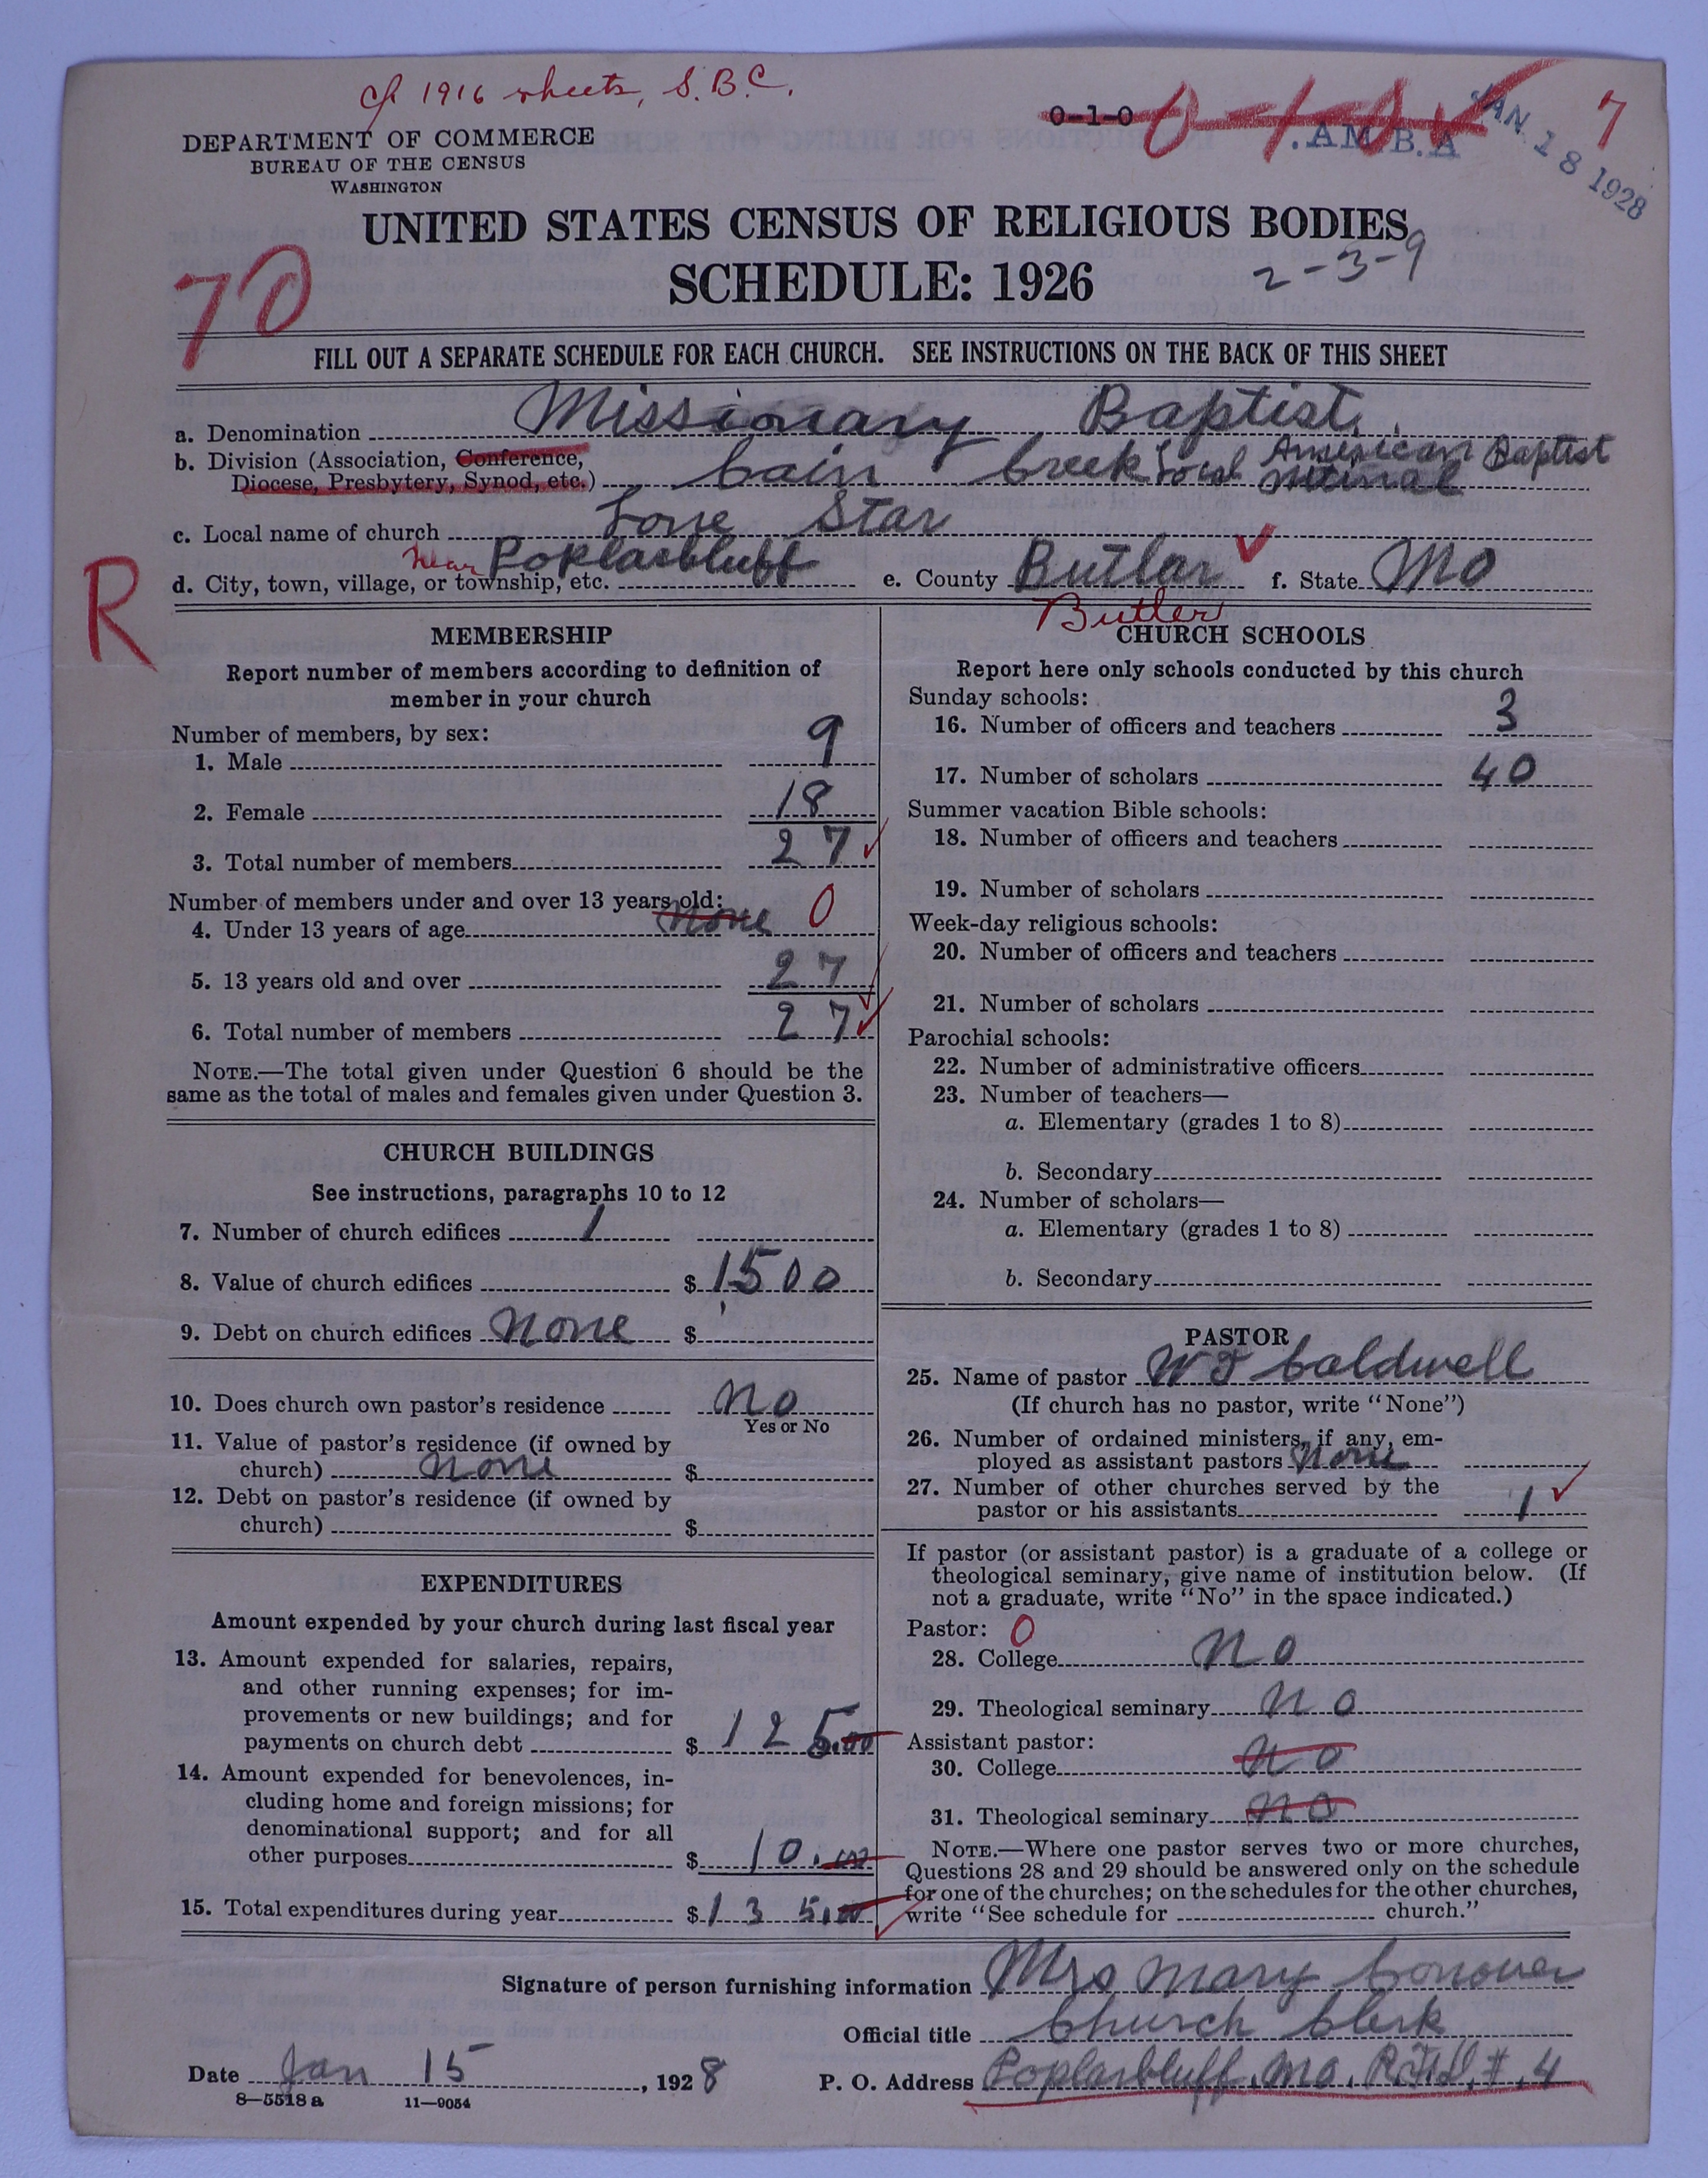 cf 1916 sheets, S.B.C.
0-1-0 0-1-0
.AM.B.A
JAN. 18 1928
7
DEPARTMENT OF COMMERCE
BUREAU OF THE CENSUS
WASHINGTON
UNITED STATES CENSUS OF RELIGIOUS BODIES
SCHEDULE: 1926
2-3-9
70
FILL OUT A SEPARATE SCHEDULE FOR EACH CHURCH. SEE INSTRUCTIONS ON THE BACK OF THIS SHEET
a. Denomination Missionary Baptist
b. Division (Association, Conference, Diocese, Presbytery, Synod, etc.) Cain Creek Local American Baptist
c. Local name of church Lone Star
d. City, town, village, or township, etc. near Poplarbluff e. County Butlar f. State Mo
Butler
R
MEMBERSHIP
Report number of members according to definition of
member in your church
Number of members, by sex:
1. Male 9
2. Female 18
3. Total number of members 27
Number of members under and over 13 years old:
4. Under 13 years of age None 0
5. 13 years old and over 27
6. Total number of members 27
NOTE.—The total given under Question 6 should be the
same as the total of males and females given under Question 3.
CHURCH BUILDINGS
See instructions, paragraphs 10 to 12
7. Number of church edifices 1
8. Value of church edifices $ 1500
9. Debt on church edifices None $
10. Does church own pastor's residence No
Yes or No
11. Value of pastor's residence (if owned by
church) None $
12. Debt on pastor's residence (if owned by
church) $
EXPENDITURES
Amount expended by your church during last fiscal year
13. Amount expended for salaries, repairs,
and other running expenses; for im-
provements or new buildings; and for
payments on church debt $ 125.00
14. Amount expended for benevolences, in-
cluding home and foreign missions; for
denominational support; and for all
other purposes $ 10.00
15. Total expenditures during year $ 135.00
CHURCH SCHOOLS
Report here only schools conducted by this church
Sunday schools:
16. Number of officers and teachers 3
17. Number of scholars 40
Summer vacation Bible schools:
18. Number of officers and teachers
19. Number of scholars
Week-day religious schools:
20. Number of officers and teachers
21. Number of scholars
Parochial schools:
22. Number of administrative officers
23. Number of teachers—
a. Elementary (grades 1 to 8)
b. Secondary
24. Number of scholars—
a. Elementary (grades 1 to 8)
b. Secondary
PASTOR
25. Name of pastor W T Caldwell
(If church has no pastor, write "None")
26. Number of ordained ministers, if any, em-
ployed as assistant pastors None
27. Number of other churches served by the
pastor or his assistants 1
If pastor (or assistant pastor) is a graduate of a college or
theological seminary, give name of institution below. (If
not a graduate, write "No" in the space indicated.)
Pastor: 0
28. College No
29. Theological seminary No
Assistant pastor:
30. College No
31. Theological seminary No
NOTE.—Where one pastor serves two or more churches,
Questions 28 and 29 should be answered only on the schedule
for one of the churches; on the schedules for the other churches,
write "See schedule for church."
Signature of person furnishing information Mrs Mary Conover
Official title Church Clerk
Date Jan 15, 1928 P. O. Address Poplarbluff, Mo. R.F.D. #.4
8—5518 a 11—9054